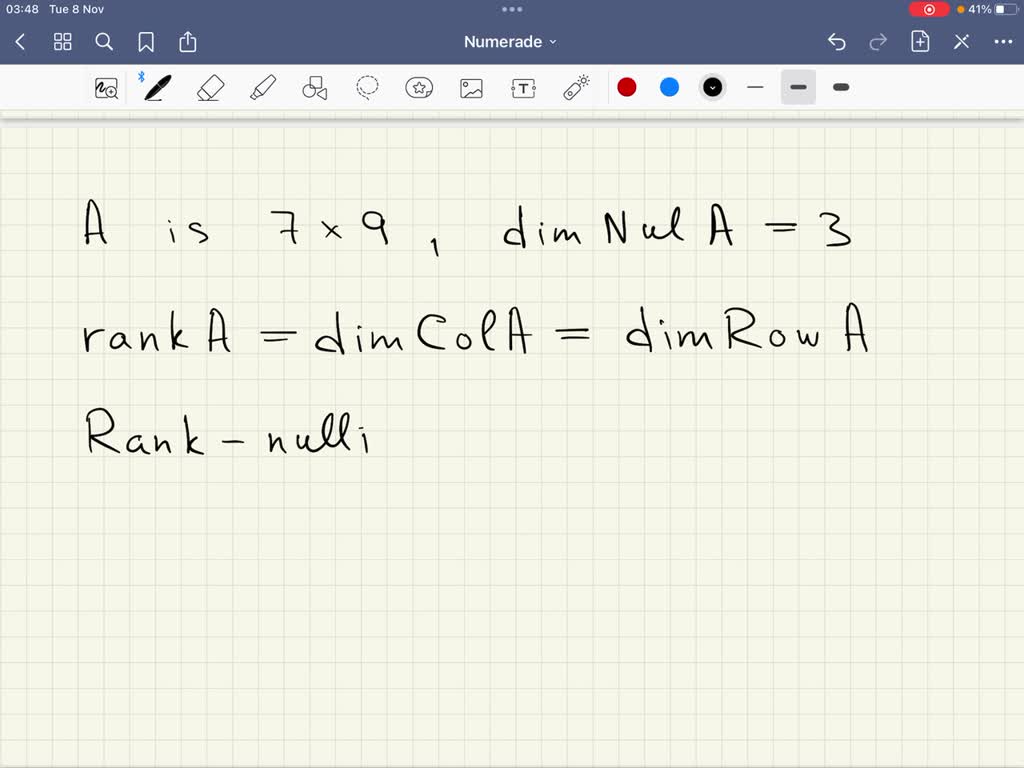 03:48 Tue 8 Nov
41%
Numerade
T
A is 7 × 9 , dim Nul A = 3
rank A = dim Col A = dim Row A
Rank - nulli